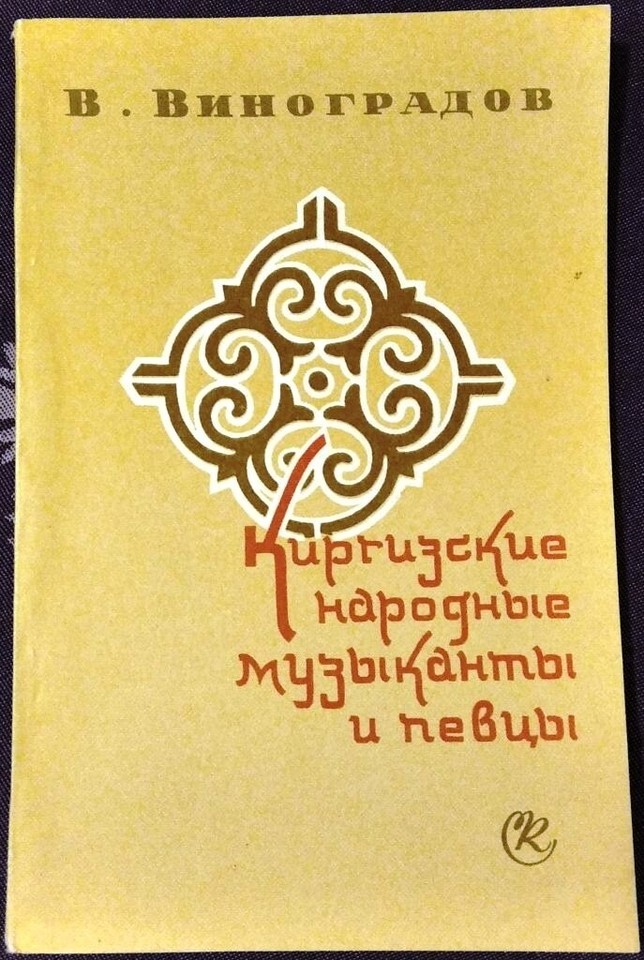 В. Виноградов
Киргизские
народные
музыканты
и певцы